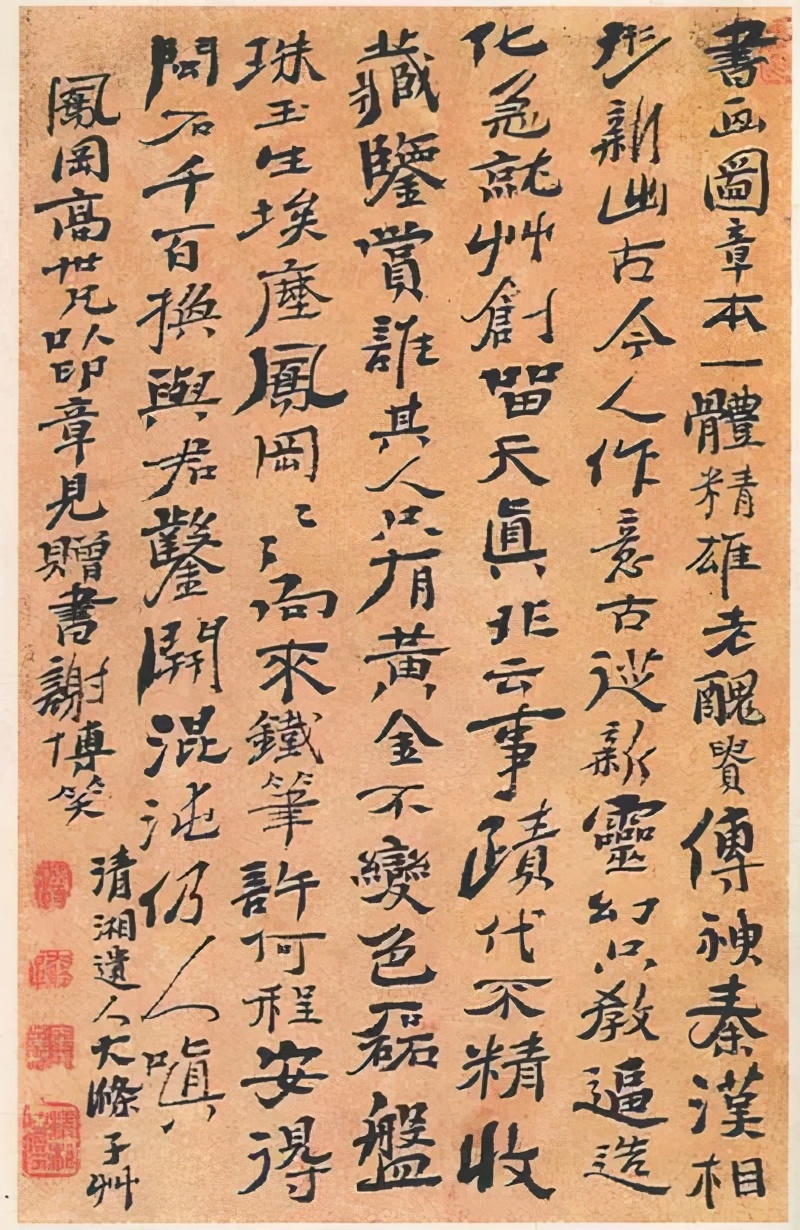 書画圖章本一體精雄老醜貴傳神秦漢相
形新出古今人作意古從新靈幻只教逼造
化急就艸創留天眞非云事蹟代不精收
藏鑒賞誰其人只有黃金不變色磊盤
珠玉生埃塵鳳岡〻〻向來鐵筆許何程安得
閑石千百換與君鑿開混沌仍人嗔
鳳岡高世兄以印章見贈書謝博笑
清湘遺人大滌子艸